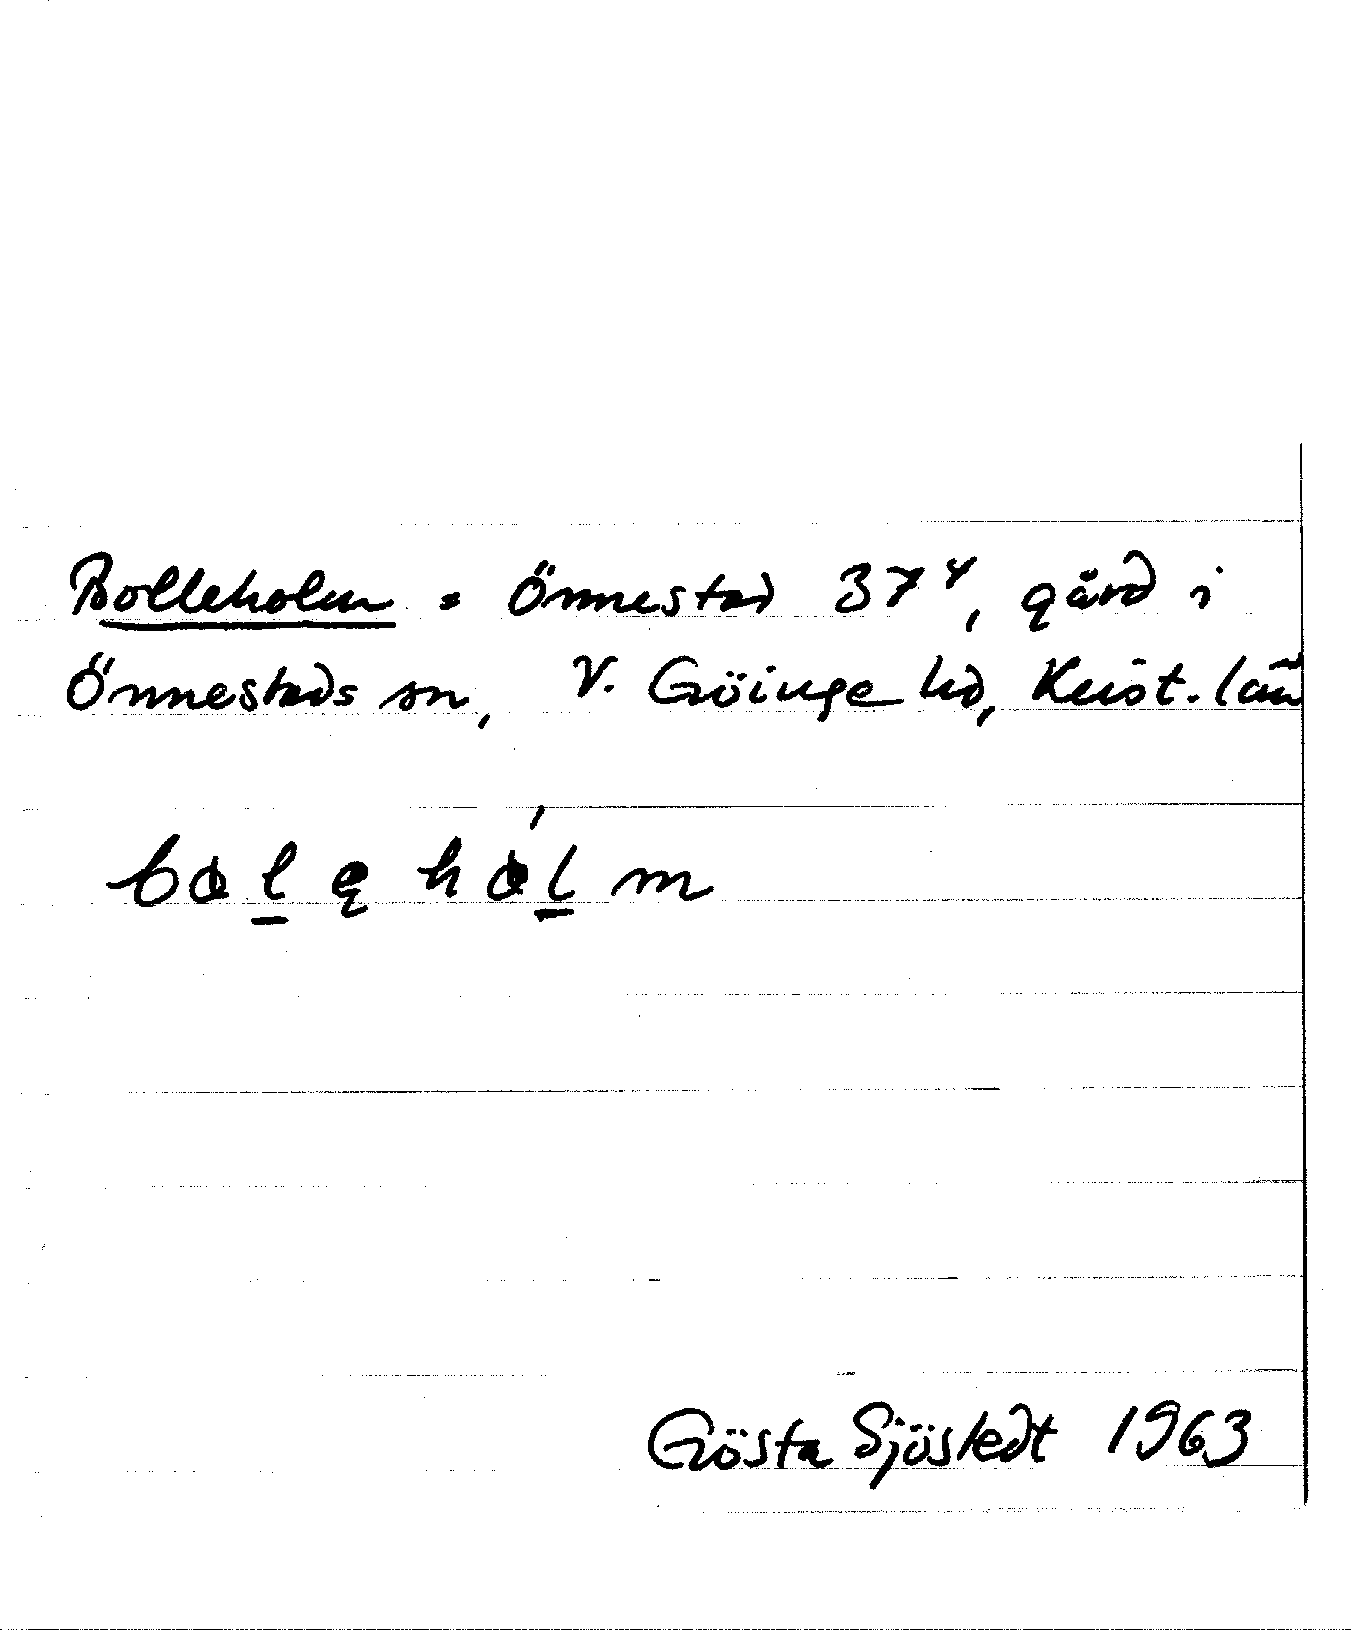 Bolleholm = Önnestad 37⁴, gård i
Önnestads sn, V. Göinge hd, Krist. län
Gösta Sjöstedt 1963